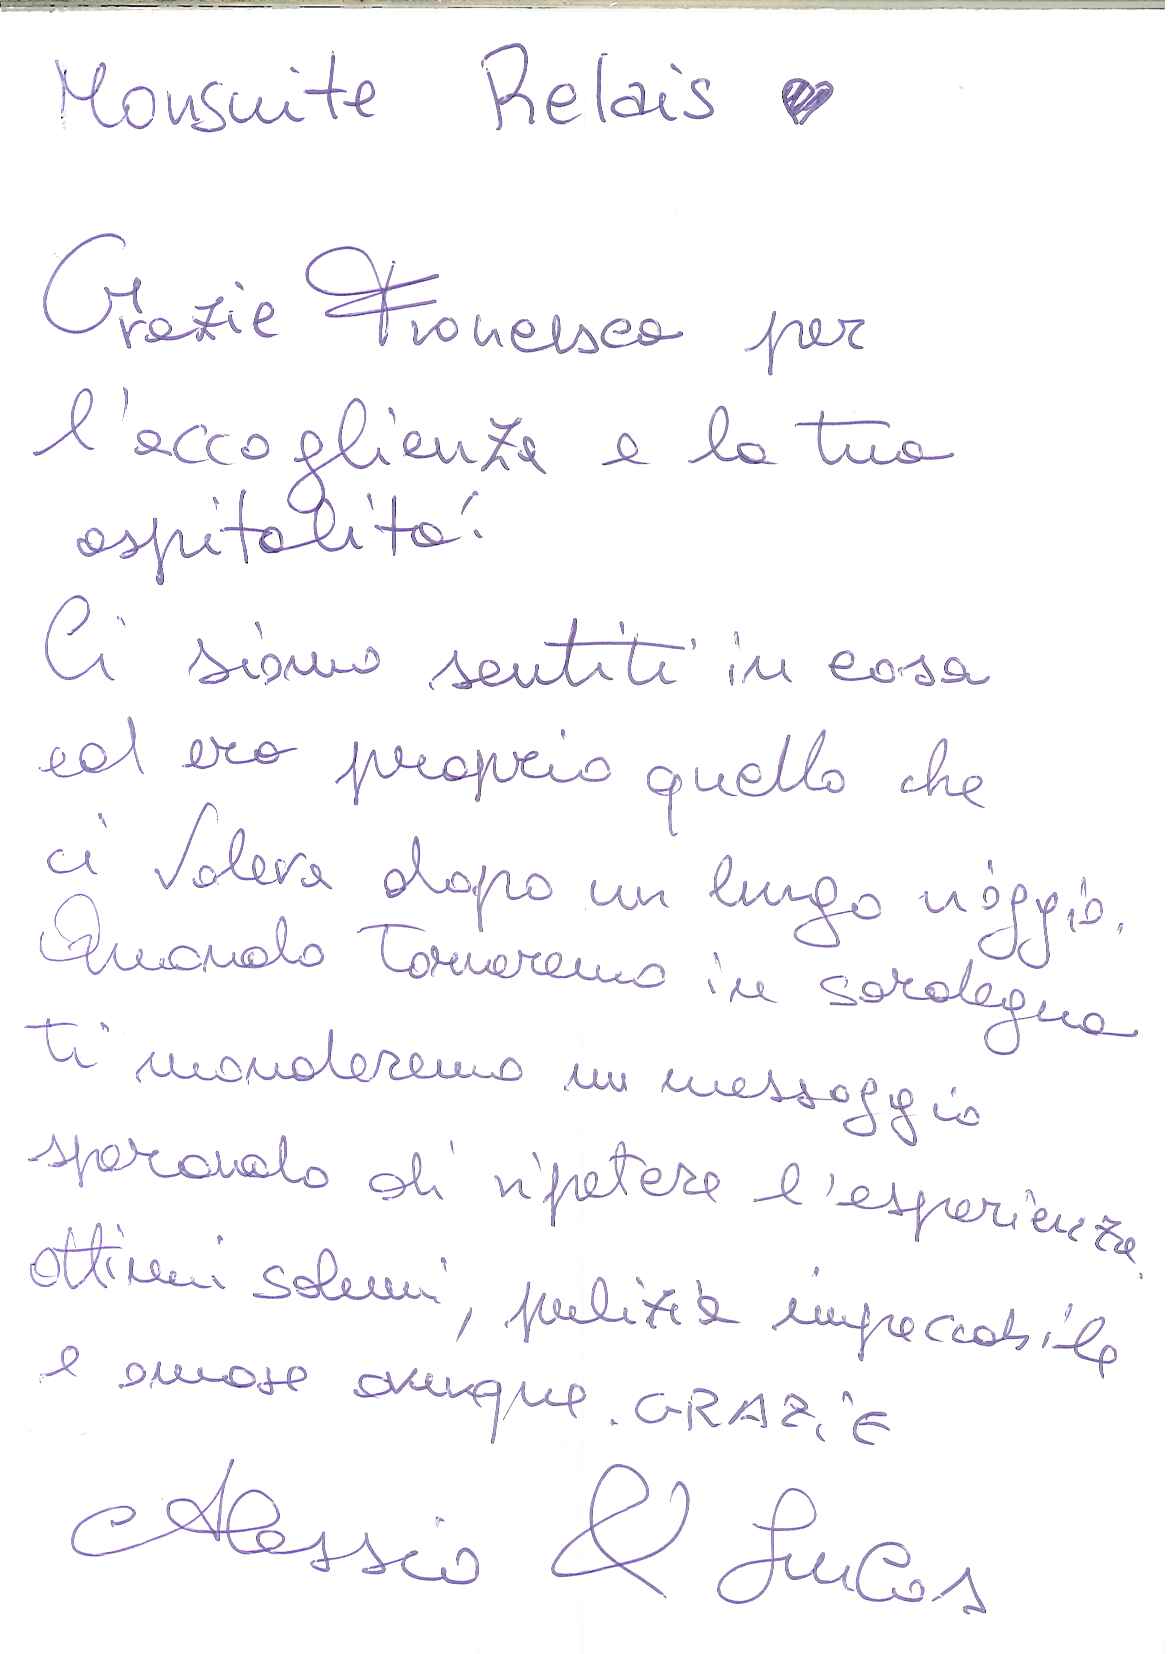 Monsuite Relais ♥
Grazie Francesca per
l'accoglienza e la tua
ospitalità!
Ci siamo sentiti in casa
ed era proprio quello che
ci voleva dopo un lungo viaggio.
Quando torneremo in sardegna
ti manderemo un messaggio
sperando di ripetere l'esperienza.
ottimi salumi, pulizia impeccabile
e amose ovunque. GRAZIE
Alessio & Lucas